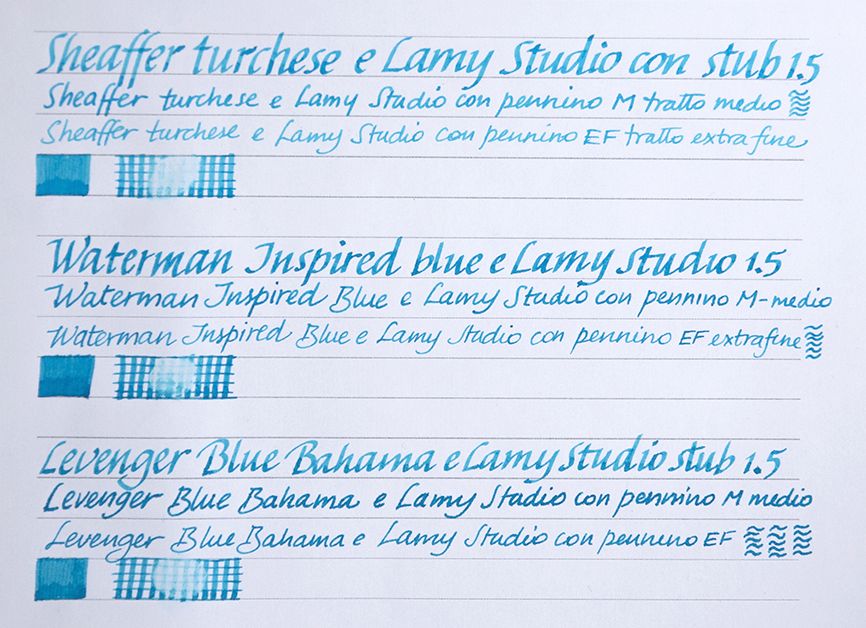 Sheaffer turchese e Lamy Studio con stub 1.5
Sheaffer turchese e Lamy Studio con pennino M tratto medio
Sheaffer turchese e Lamy Studio con pennino EF tratto extra fine
Waterman Inspired blue e Lamy Studio 1.5
Waterman Inspired Blue e Lamy Studio con pennino M-medio
Waterman Inspired Blue e Lamy Studio con pennino EF extrafine
Levenger Blue Bahama e Lamy Studio stub 1.5
Levenger Blue Bahama e Lamy Studio con pennino M medio
Levenger Blue Bahama e Lamy Studio con pennino EF